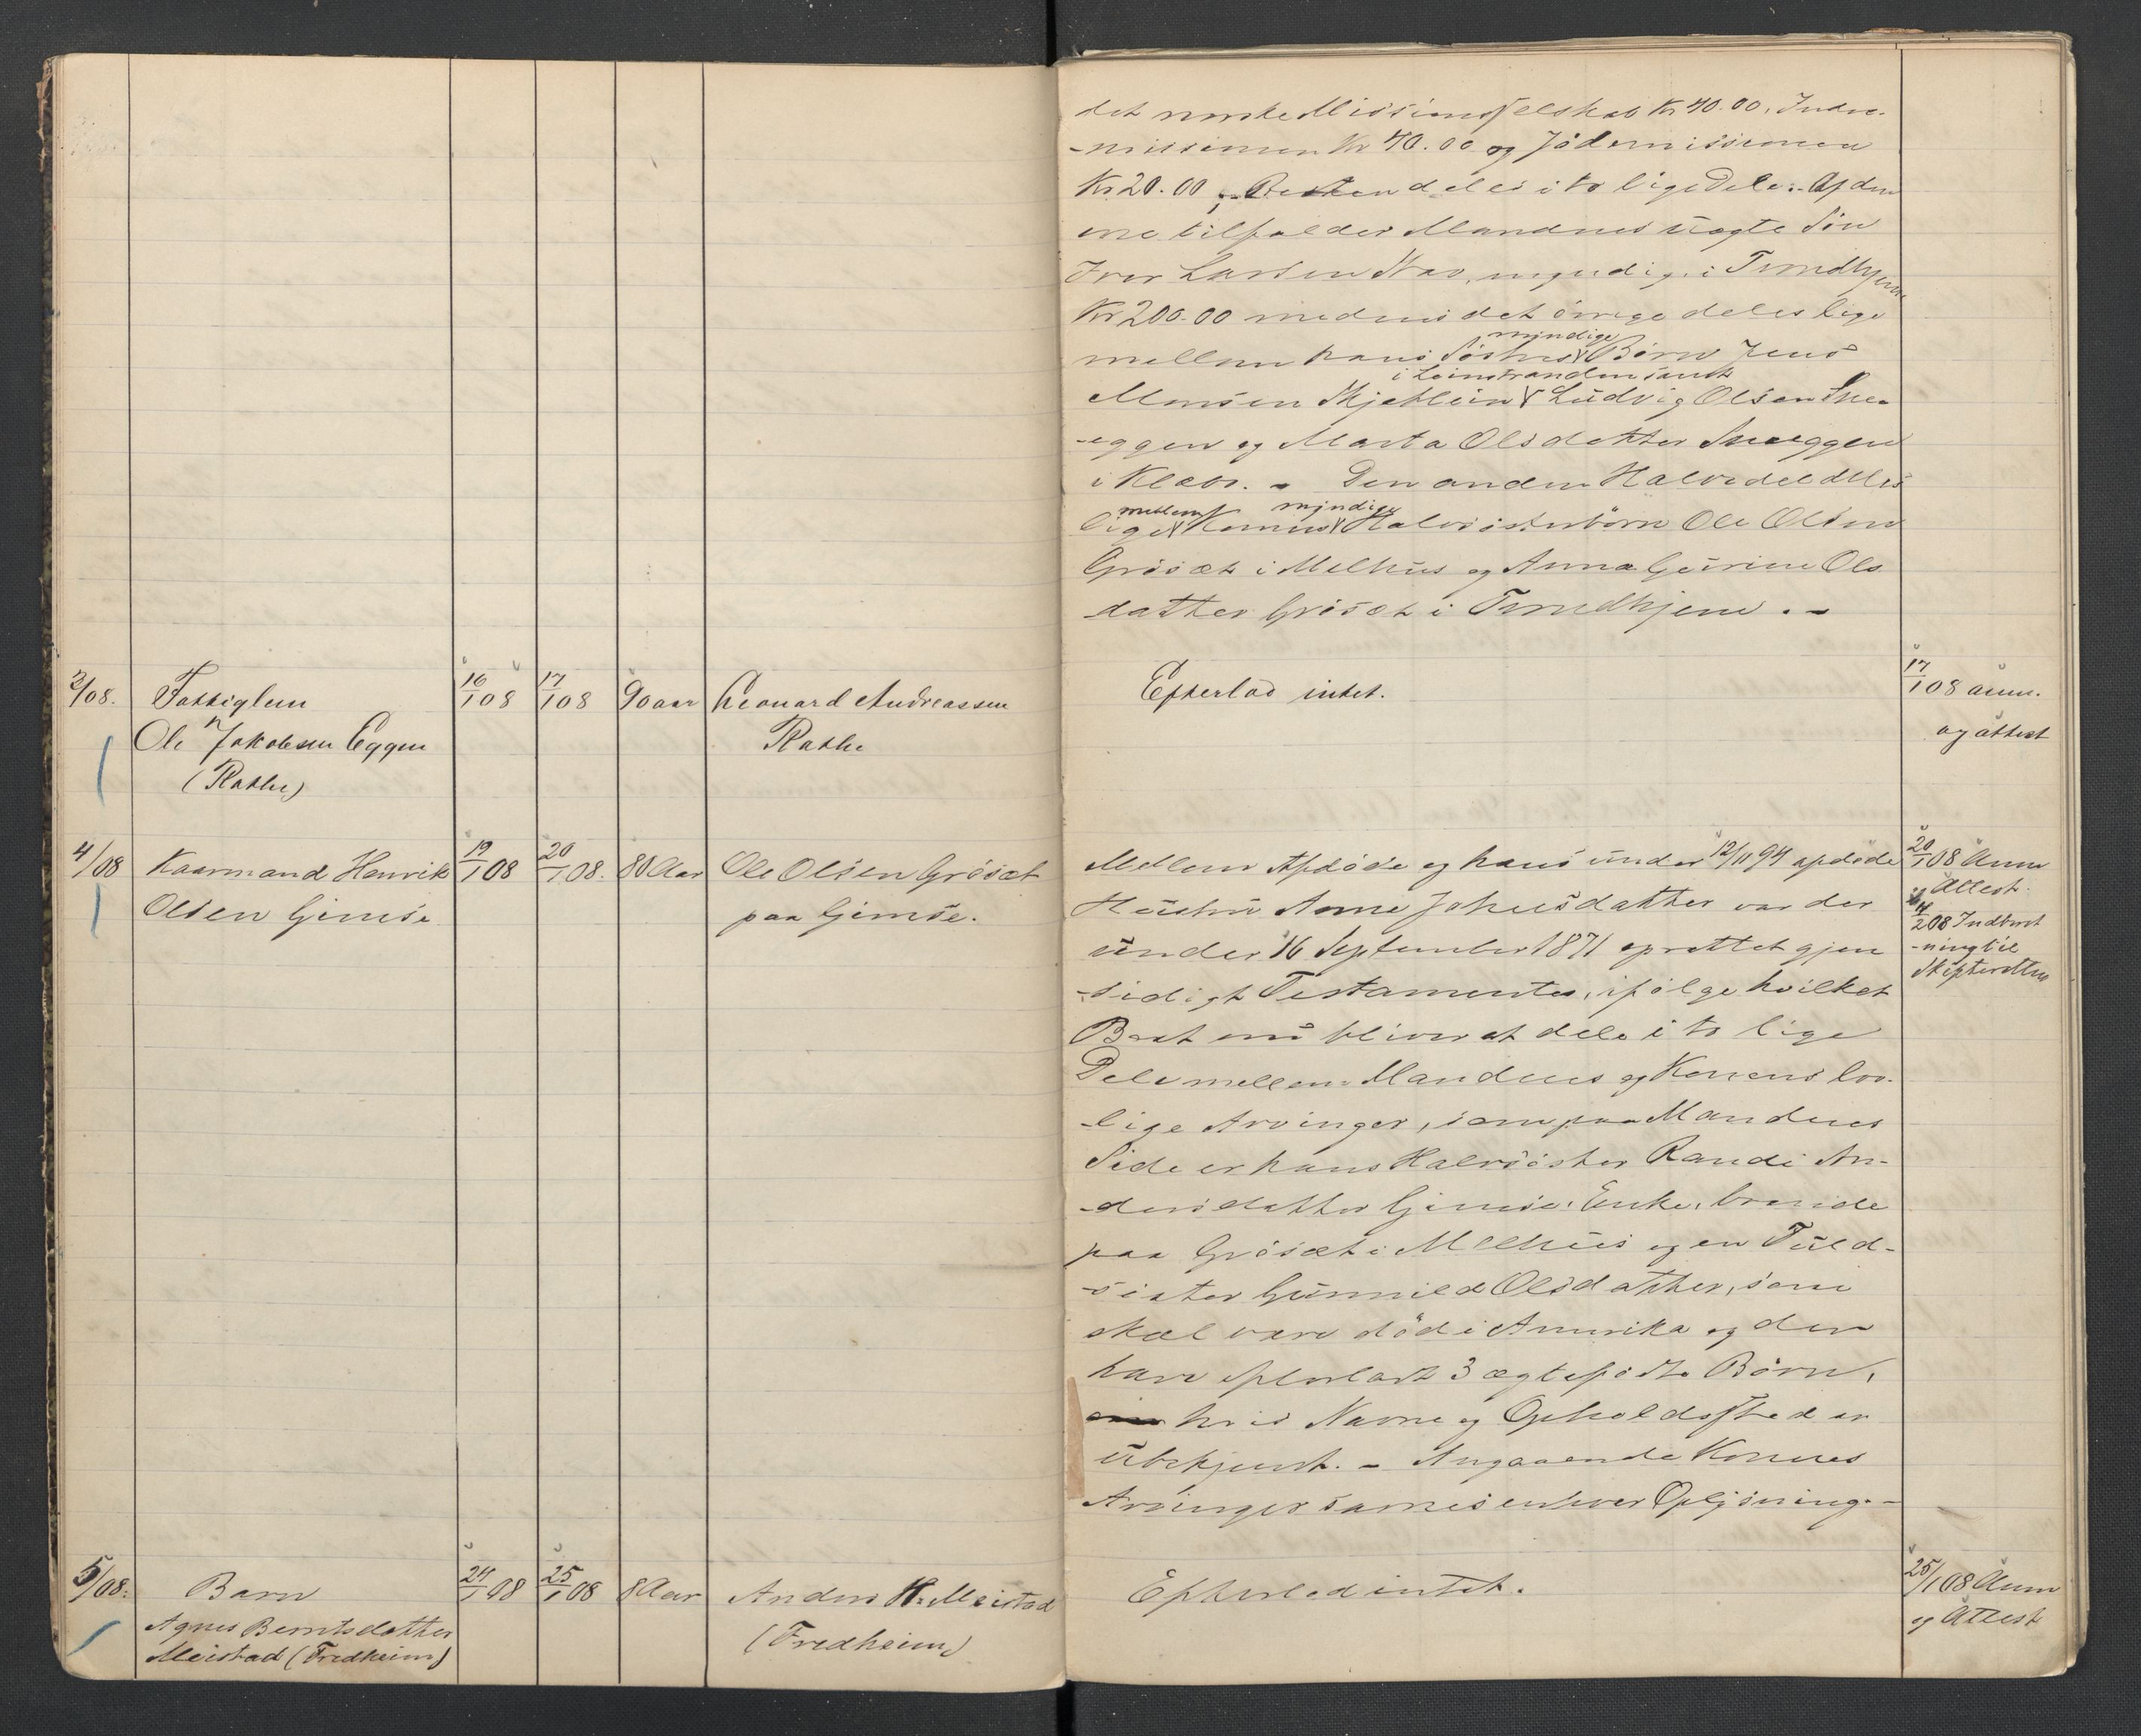 det norske Missionsselskab Kr 40.00. Indre-
-missionen Kr 40.00 og Jødemissionen
Kr 20.00, Resten deles i to lige Dele. - Af den
ene tilfalder Mandens uægte Søn
Iver Larsen, myndig, i Trondhjem
Kr 200.00 medens det øvrige deles lige
mellem hans Søsters myndige Børn Jens
Monsen Skjetlein i Leinstranden samt Ludvig Olsen Sne-
-eggen og Marta Olsdatter Sneeggen
i Klæbu. - Den anden Halvdel deles
lige mellem Konens myndige Halvsøsterbørn Ole Olsen
Grøsæt i Melhus og Anna Gurine Ols
datter Grøsæt i Trondhjem. -
3/08. Fattiglem
Ole Jakobsen Eggen
(Rathe)
16/1 08
17/1 08
90 aar
Leonard Andreassen
Rathe
Efterlod intet.
17/1 08 anm.
og attest
4/08 Kaarmand Henrik
Olsen Gimse
19/1 08
20/1 08.
80 Aar
Ole Olsen Grøsæt
paa Gimse.
Mellem Afdøde og hans under 12/11 94 afdøde
Hustru Anne Johnsdatter var der
under 16 September 1871 oprettet gjen
-sidigt Testamente, ifølge hvilket
Boet nu bliver at dele i to lige
Dele mellem Mandens og Konens lov-
-lige Arvinger, som paa Mandens
Side er hans Halvsøster Randi An-
-dersdatter Gimse, Enke, boende
paa Grøsæt i Melhus og en Fuld-
-søster Gunnild Olsdatter, som
skal være død i Amerika og der
have efterladt 3 ægtefødte Børn,
hvis Navne og Opholdssted er
ubekjendt. - Angaaende Konens
Arvinger savnes enhver Oplysning. -
20/1 08 Anm
og Attest.
4/2 08 Indberet
-ning til
Skifteretten
5/08. Barn
Agnes Berntsdatter
Meistad (Fredheim)
24/1 08
25/1 08
8 Aar
Anders H. Meistad
(Fredheim)
Efterlod intet.
25/1 08 Anm
og Attest